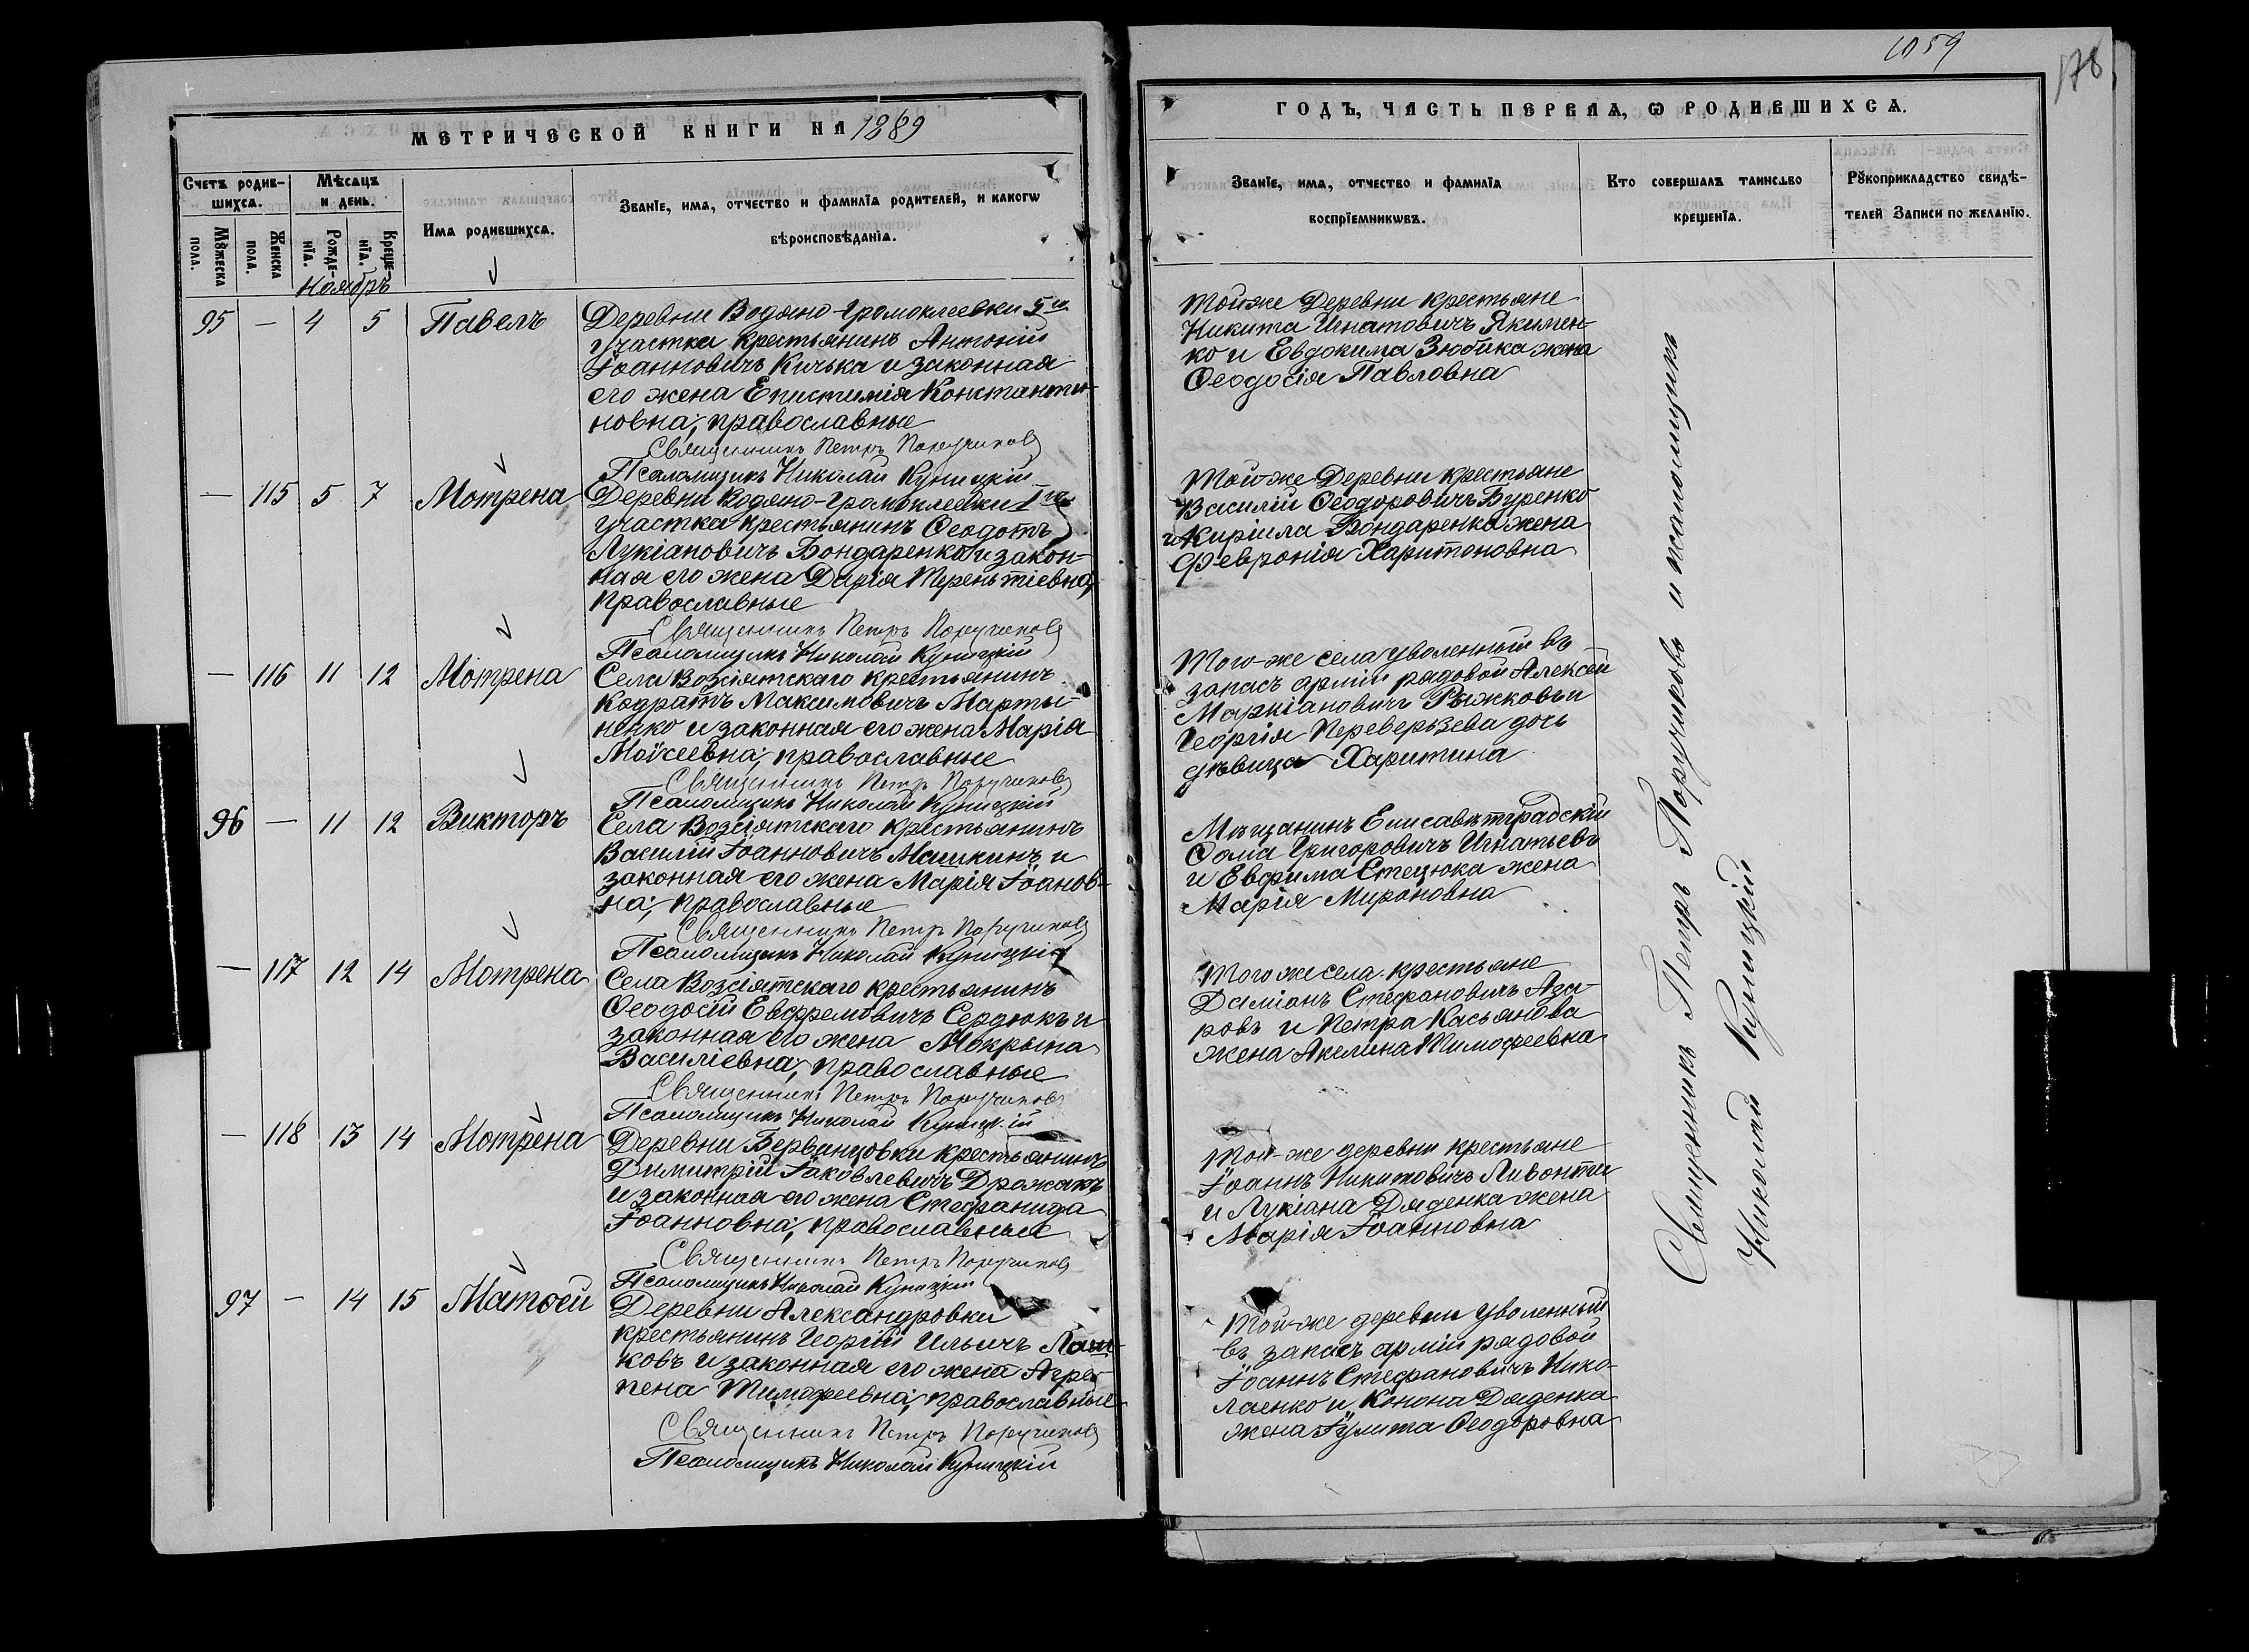 1059
178
МЕТРИЧЕСКОЙ КНИГИ НА 1889
ГОДЪ, ЧАСТЬ ПЕРВАЯ, Ѡ РОДИВШИХСѦ.
Счетъ родив-
шихсѧ.
Мѣсѧцъ
и день.
Имѧ родившихсѧ.
Званїе, имѧ, отчество и фамилїѧ родителей, и какогѡ
вѣроисповѣданїѧ.
Мꙋжеска
пола.
Женска
пола.
Рожде-
нїѧ.
Креще-
нїѧ.
Званїе, имѧ, отчество и фамилїѧ
воспрїемникѡвъ.
Кто совершалъ таинство
крещенїѧ.
Рꙋкоприкладство свидѣ-
телей Записи по желанїю.
Ноябрь
95 — 4 5 Павелъ
Деревни Водяно-Громоклеевки 5го
участка крестьянинъ Антоній
Іоанновичъ Кичька и законная
его жена Епистимія Константи-
новна; православные
Священникъ Петръ Поручиковъ
Псаломщикъ Николай Куницкій
Тойже Деревни крестьяне
Никита Игнатовичъ Якимен-
ко и Евдокима Зюбика жена
Ѳеодосія Павловна
— 115 5 7 Мотрена
Деревни Водяно-Громоклеевки 1го
участка крестьянинъ Ѳеодотъ
Лукіановичъ Бондаренко и закон-
ная его жена Дарія Терентіевна,
православные
Священникъ Петръ Поручиковъ
Псаломщикъ Николай Куницкій
Той-же Деревни крестьяне
Василій Ѳеодоровичъ Буренко
и Кирилла Бондаренка жена
Февронія Харитоновна
— 116 11 12 Мотрена
Села Возсіятскаго крестьянинъ
Кодратъ Максимовичъ Марты-
ненко и законная его жена Марія
Моѵсеевна; православные
Священникъ Петръ Поручиковъ
Псаломщикъ Николай Куницкій
Того-же села уволенный въ
запасъ арміи рядовой Алексѣй
Маркіановичъ Рыжковъ и
Георгія Переверзева дочь
дѣвица Харитина
96 — 11 12 Викторъ
Села Возсіятскаго крестьянинъ
Василій Іоанновичъ Машкинъ и
законная его жена Марія Іоанов-
на; православные
Священникъ Петръ Поручиковъ
Псаломщикъ Николай Куницкій
Мѣщанинъ Елисаветградскій
Ѳома Григоровичъ Игнатьевъ
и Евфима Стецюка жена
Марія Мироновна
— 117 12 14 Мотрена
Села Возсіятскаго крестьянинъ
Ѳеодосій Евфремовичъ Сердюкъ и
законная его жена Мокрына
Василіевна; православные
Священникъ Петръ Поручиковъ
Псаломщикъ Николай Куницкій
Того же села крестьяне
Даміанъ Стефановичъ Аза-
ровъ и Петра Касьянова
жена Акелина Тимофеевна
— 118 13 14 Мотрена
Деревни Бервинцовки крестьянинъ
Димитрій Іаковлевичъ Дрожакъ
и законная его жена Стефанида
Іоанновна; православные
Священникъ Петръ Поручиковъ
Псаломщикъ Николай Куницкій
Той-же деревни крестьяне
Іоаннъ Никитовичъ Ливонти
и Лукіана Дяденка жена
Марія Іоанновна
97 — 14 15 Матѳей
Деревни Александровки
крестьянинъ Георгій Ильичъ Лаш-
ковъ и законная его жена Агре-
пена Тимофеевна; православные
Священникъ Петръ Поручиковъ
Псаломщикъ Николай Куницкій
Той-же деревни уволенный
въ запасъ арміи рядовой
Іоаннъ Стефановичъ Нико-
лаенко и Конона Дяденка
жена Іулита Ѳеодоровна
Священникъ Петръ Поручиковъ и псаломщикъ
Николай Куницкій